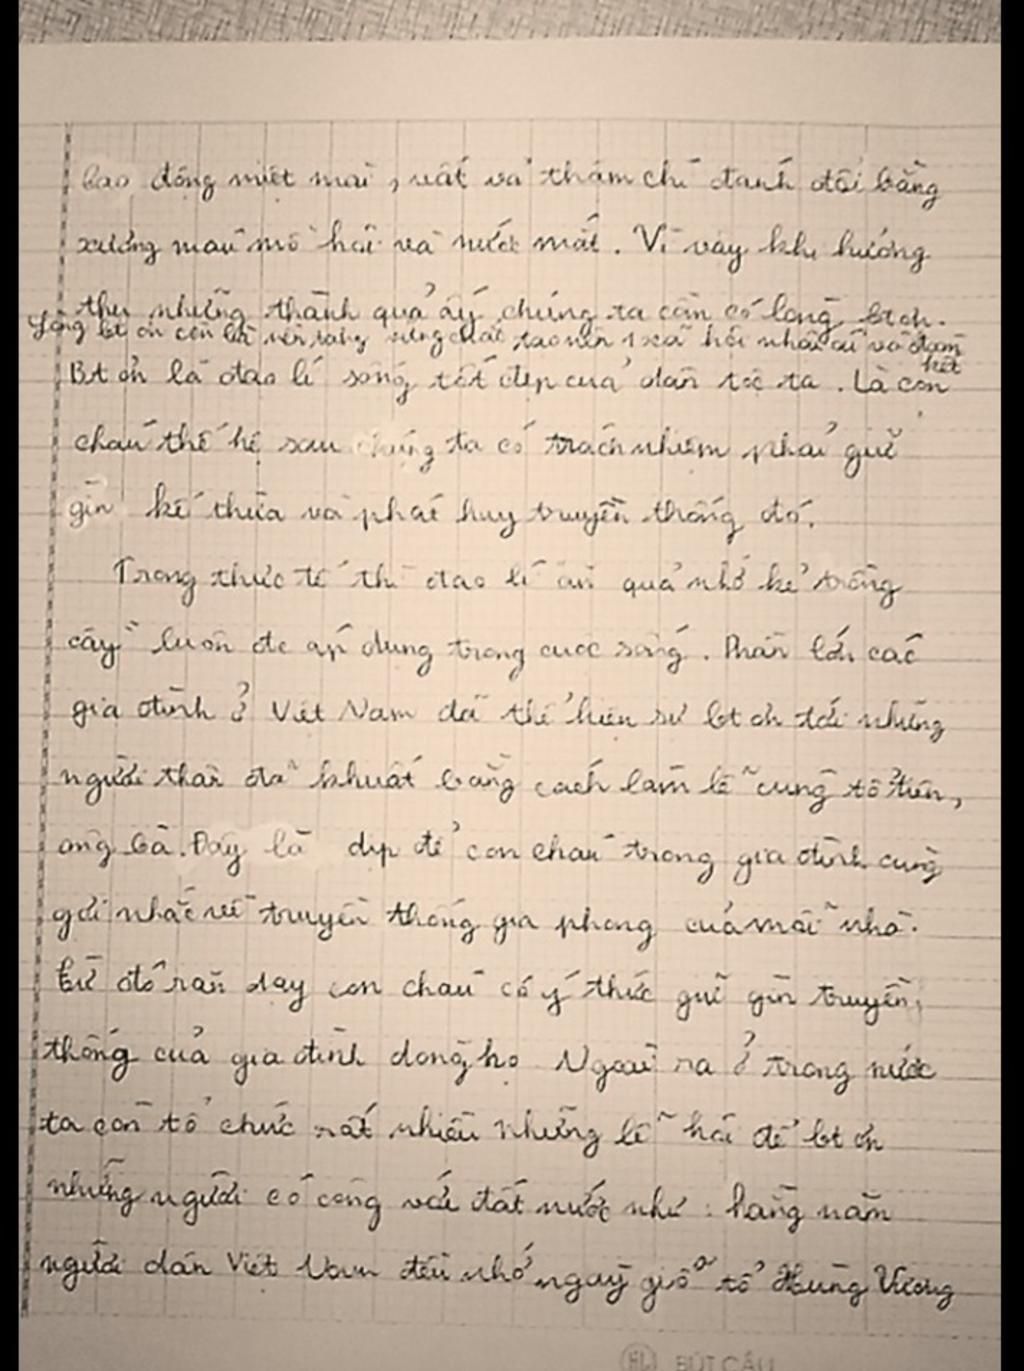 lao động miệt mài, vất vả thậm chí đánh đổi bằng
xương máu mồ hôi và nước mắt. Vì vậy khi hưởng
thụ những thành quả ấy chúng ta cần có lòng bt ơn.
Lòng bt ơn còn là nền tảng vững chắc tạo nên 1 xã hội nhân ái và đoàn
kết
Bt ơn là đạo lí sống tốt đẹp của dân tộc ta. Là con
cháu thế hệ sau chúng ta có trách nhiệm phải giữ
gìn kế thừa và phát huy truyền thống đó.
Trong thực tế thì đạo lí ăn quả nhớ kẻ trồng
cây" luôn đc áp dụng trong cuộc sống. Phần lớn các
gia đình ở Việt Nam đã thể hiện sự bt ơn tới những
người thân đã khuất bằng cách làm lễ cúng tổ tiên,
ông bà. Đây là dịp để con cháu trong gia đình cùng
gợi nhắc về truyền thống gia phong của mỗi nhà.
từ đó răn dạy con cháu có ý thức giữ gìn truyền
thống của gia đình dòng họ Ngoài ra ở trong nước
ta còn tổ chức rất nhiều những lễ hội để bt ơn
những người có công với đất nước như: hằng năm
người dân Việt Nam đều nhớ ngày giỗ tổ Hùng Vương
HL BÚT CẬU